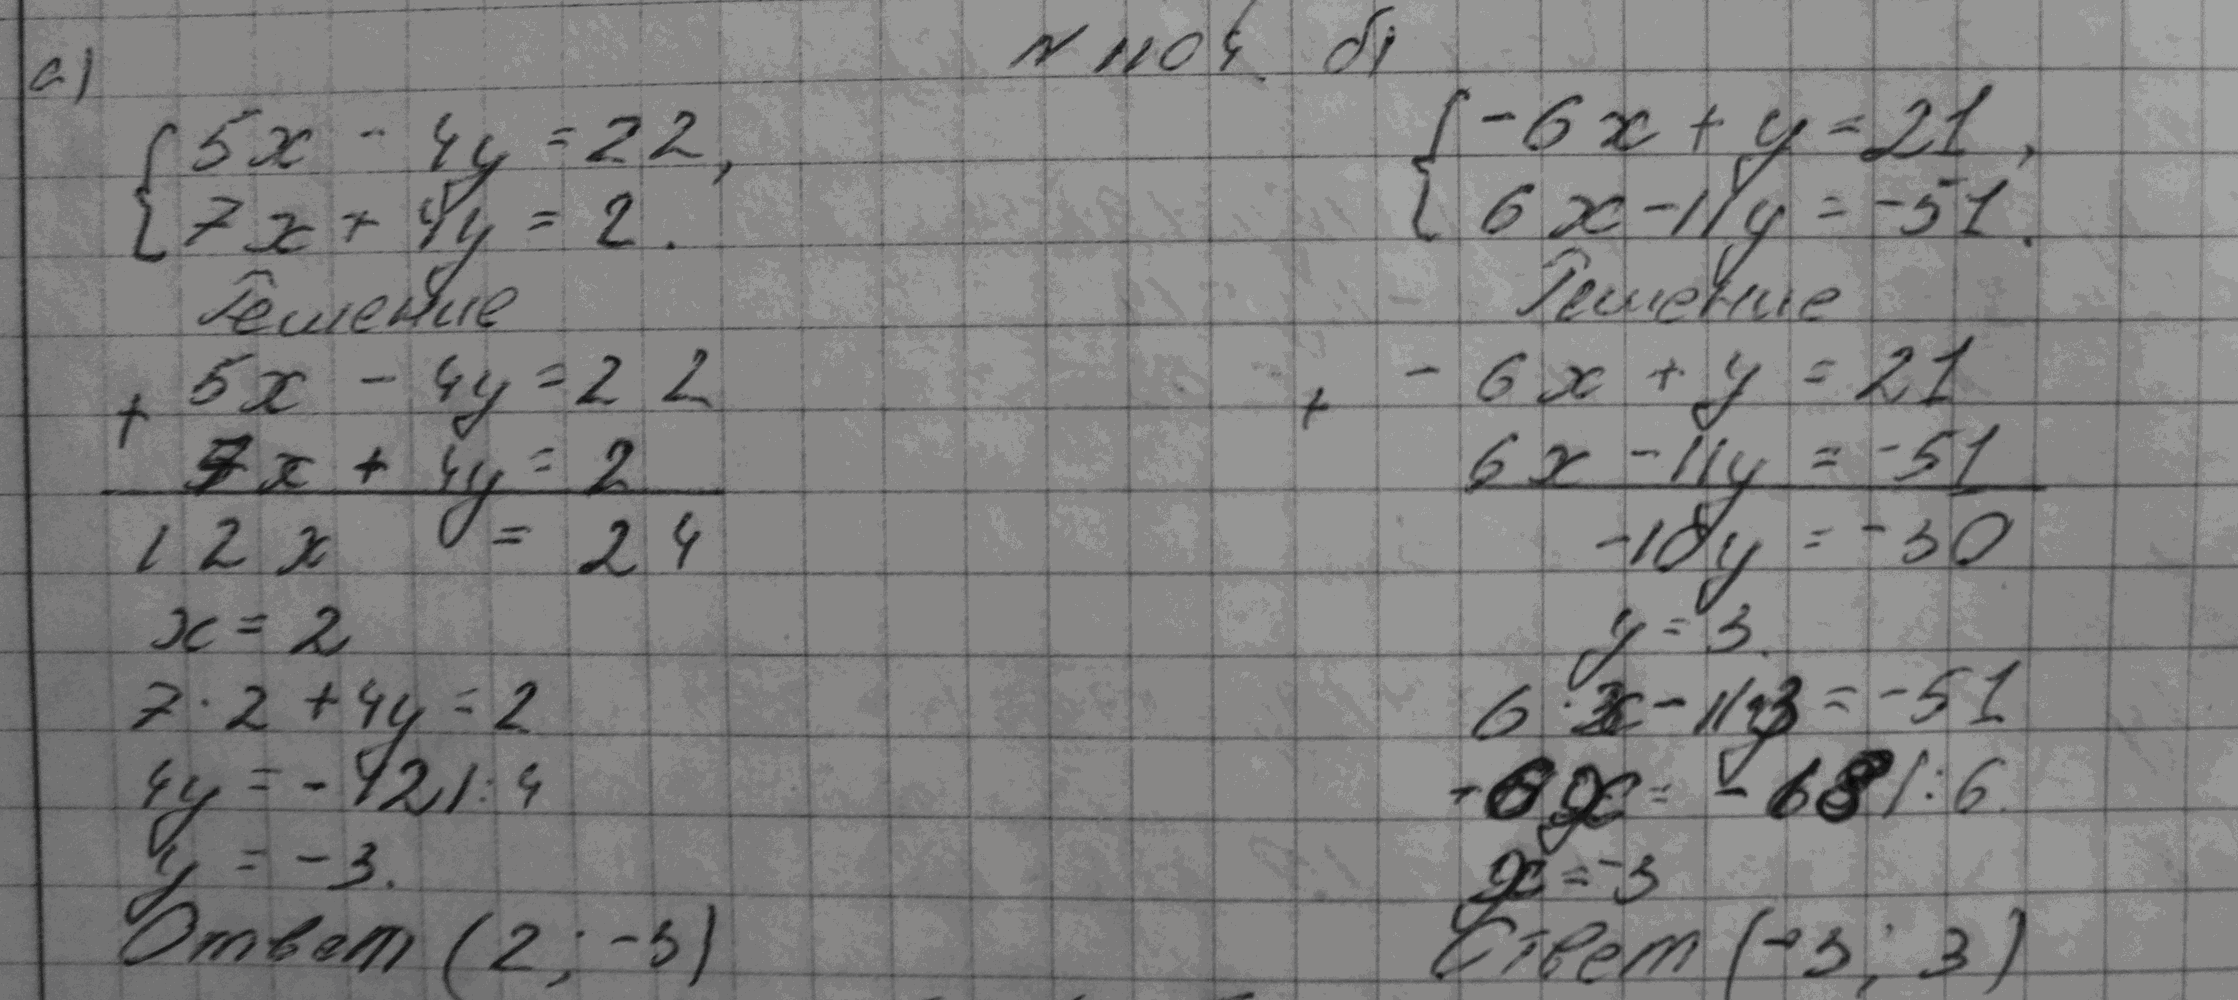 № 1104
а)
{ 5x - 4y = 22,
7x + 4y = 2.
Решение
+ 5x - 4y = 22
7x + 4y = 2
12x = 24
x = 2
7 · 2 + 4y = 2
4y = -12 |: 4
y = -3.
Ответ (2; -3)
б)
{ -6x + y = 21,
6x - 11y = -51.
Решение
+ -6x + y = 21
6x - 11y = -51
-10y = -30
y = 3.
6x - 11·3 = -51
6x = -18 |: 6
x = -3
Ответ (-3; 3)